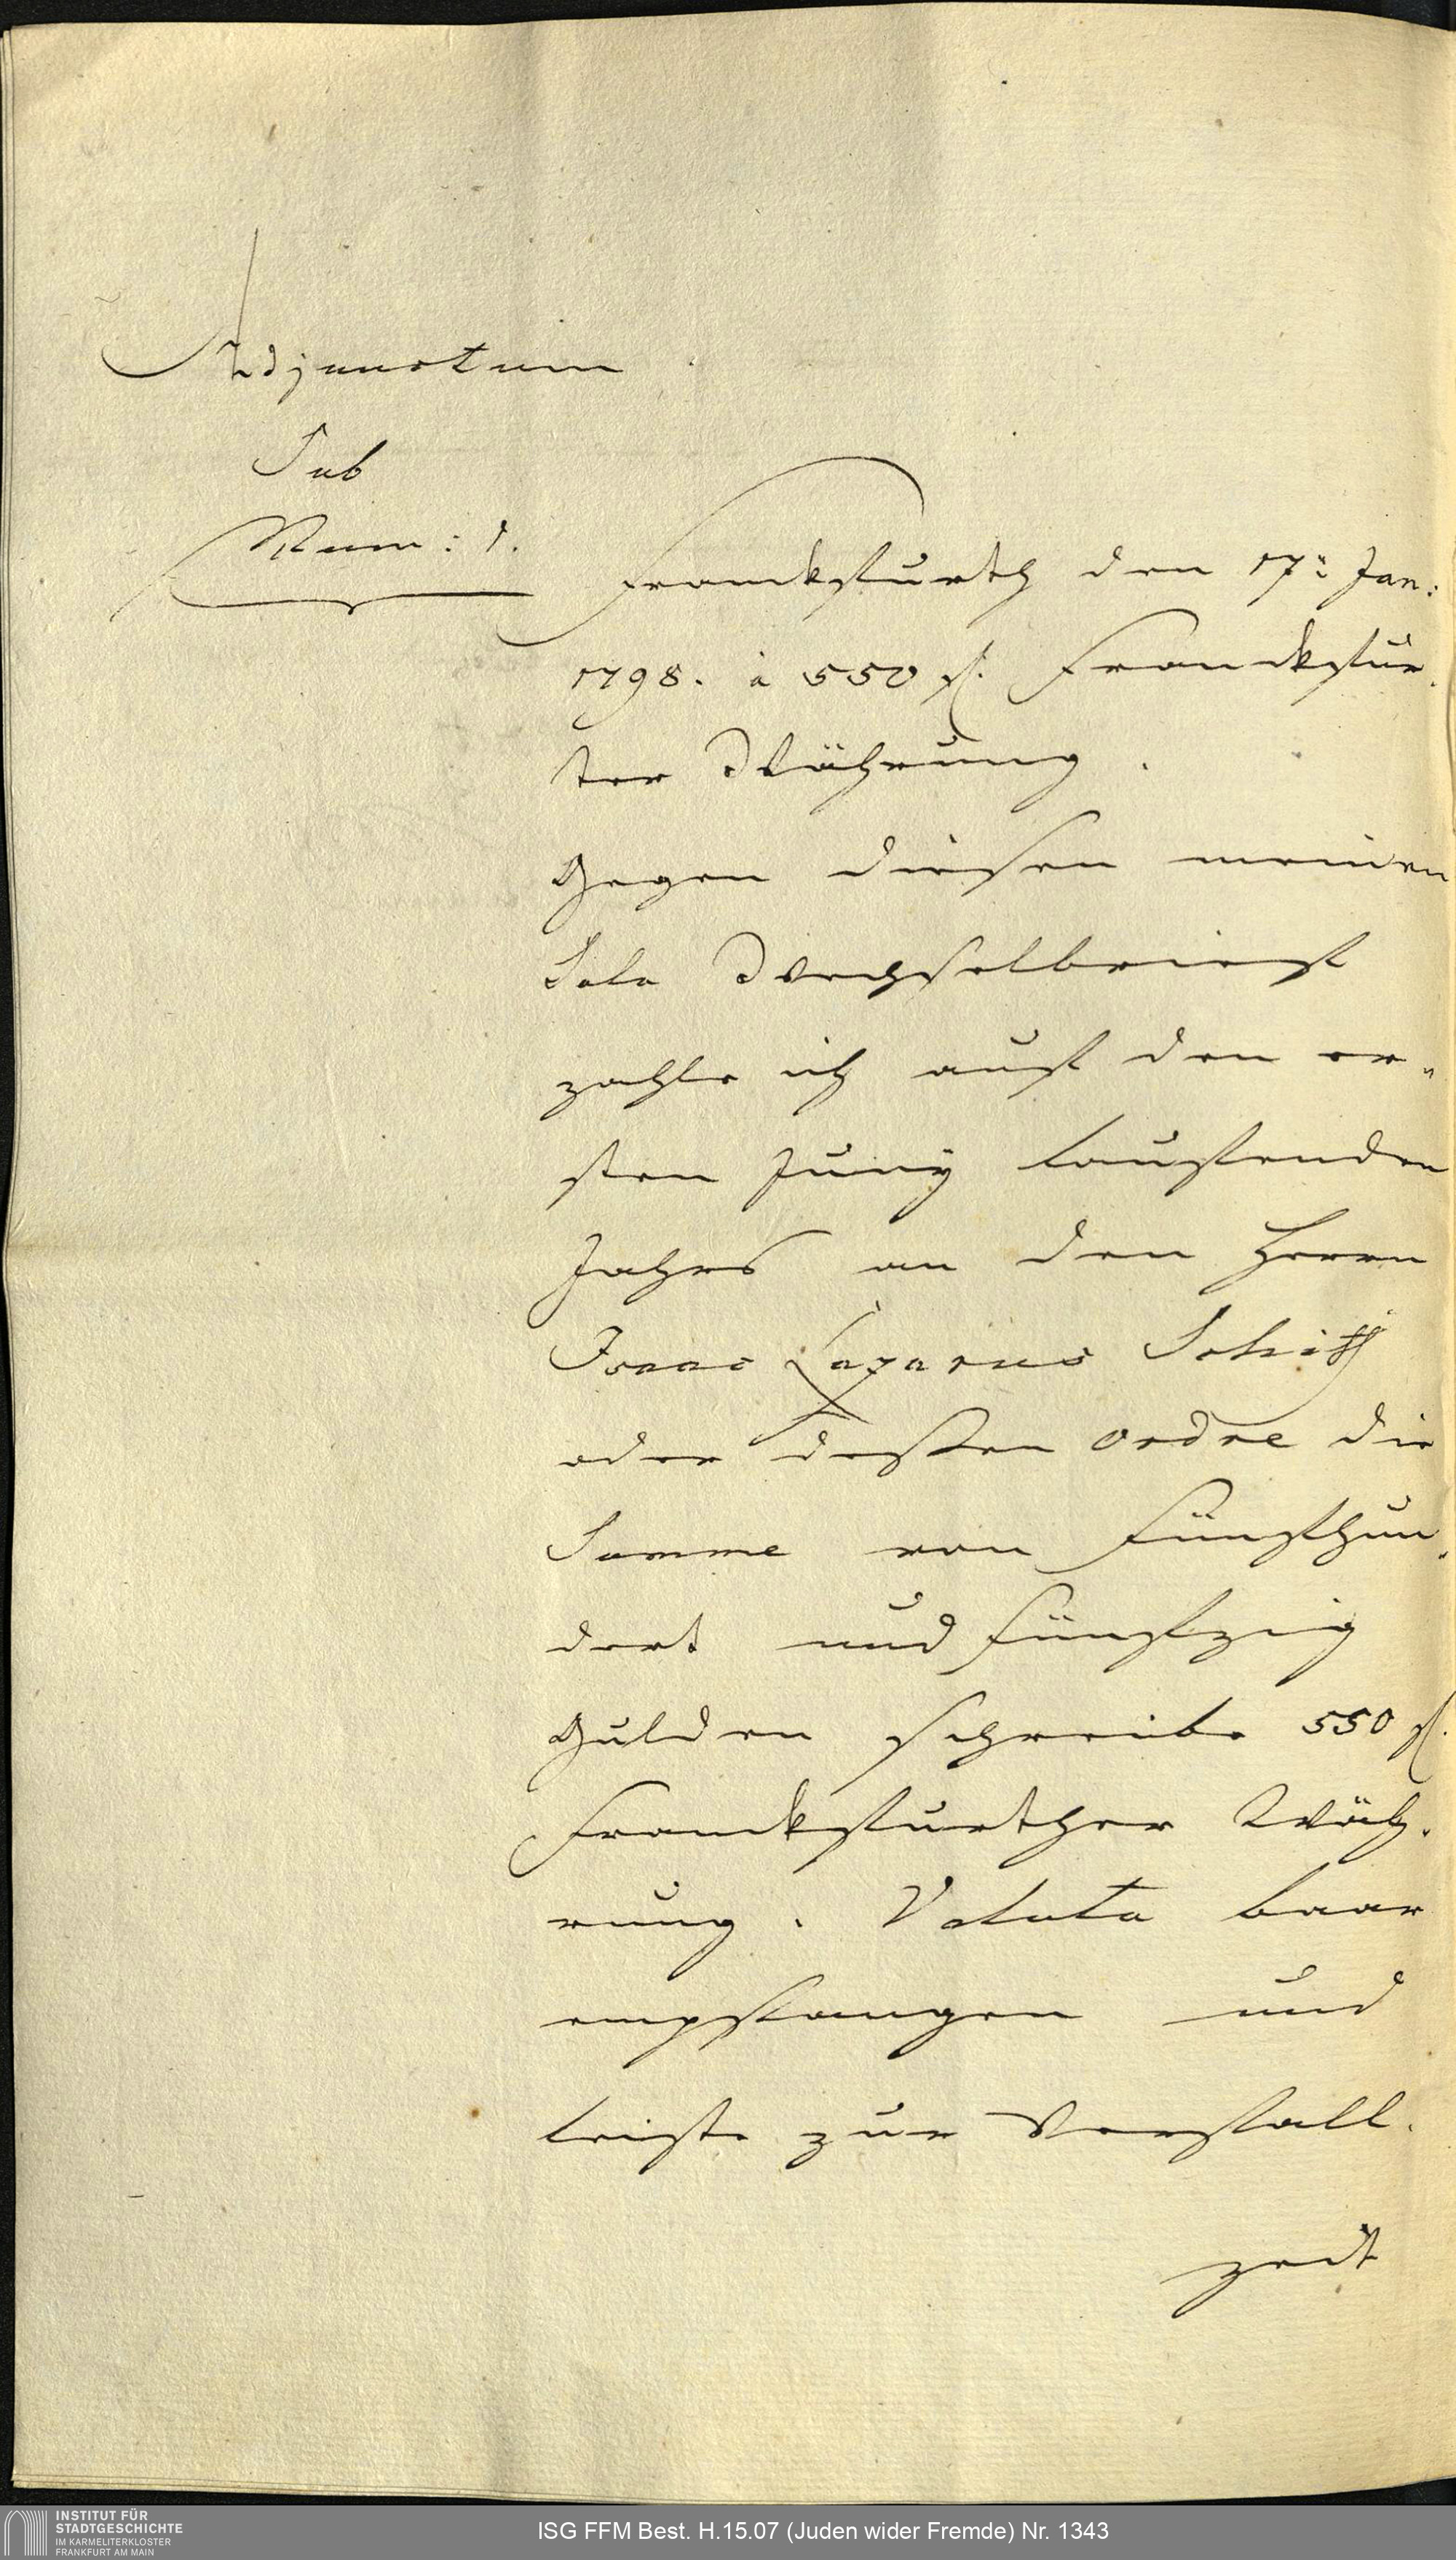 Adjunctum
Sub
Num: 1.
Franckfurth den 17: Jan:
1798. à 550 fl. Franckfur,
ter Währung.
Gegen diesen meinen
Sola Wechselbrieff
zahle ich auff den er„
sten Juny lauffenden
Jahrs an den Herrn
Isaac Lazarus Schiff
oder dessen ordre die
Summe von Fünffhun„
dert und Fünffzig
Gulden schreibe 550 fl.
Franckfurther Wäh,
rung. Valuta baar
empfangen und
leiste zur Verfall,
zeit
INSTITUT FÜR
STADTGESCHICHTE
IM KARMELITERKLOSTER
FRANKFURT AM MAIN
ISG FFM Best. H.15.07 (Juden wider Fremde) Nr. 1343